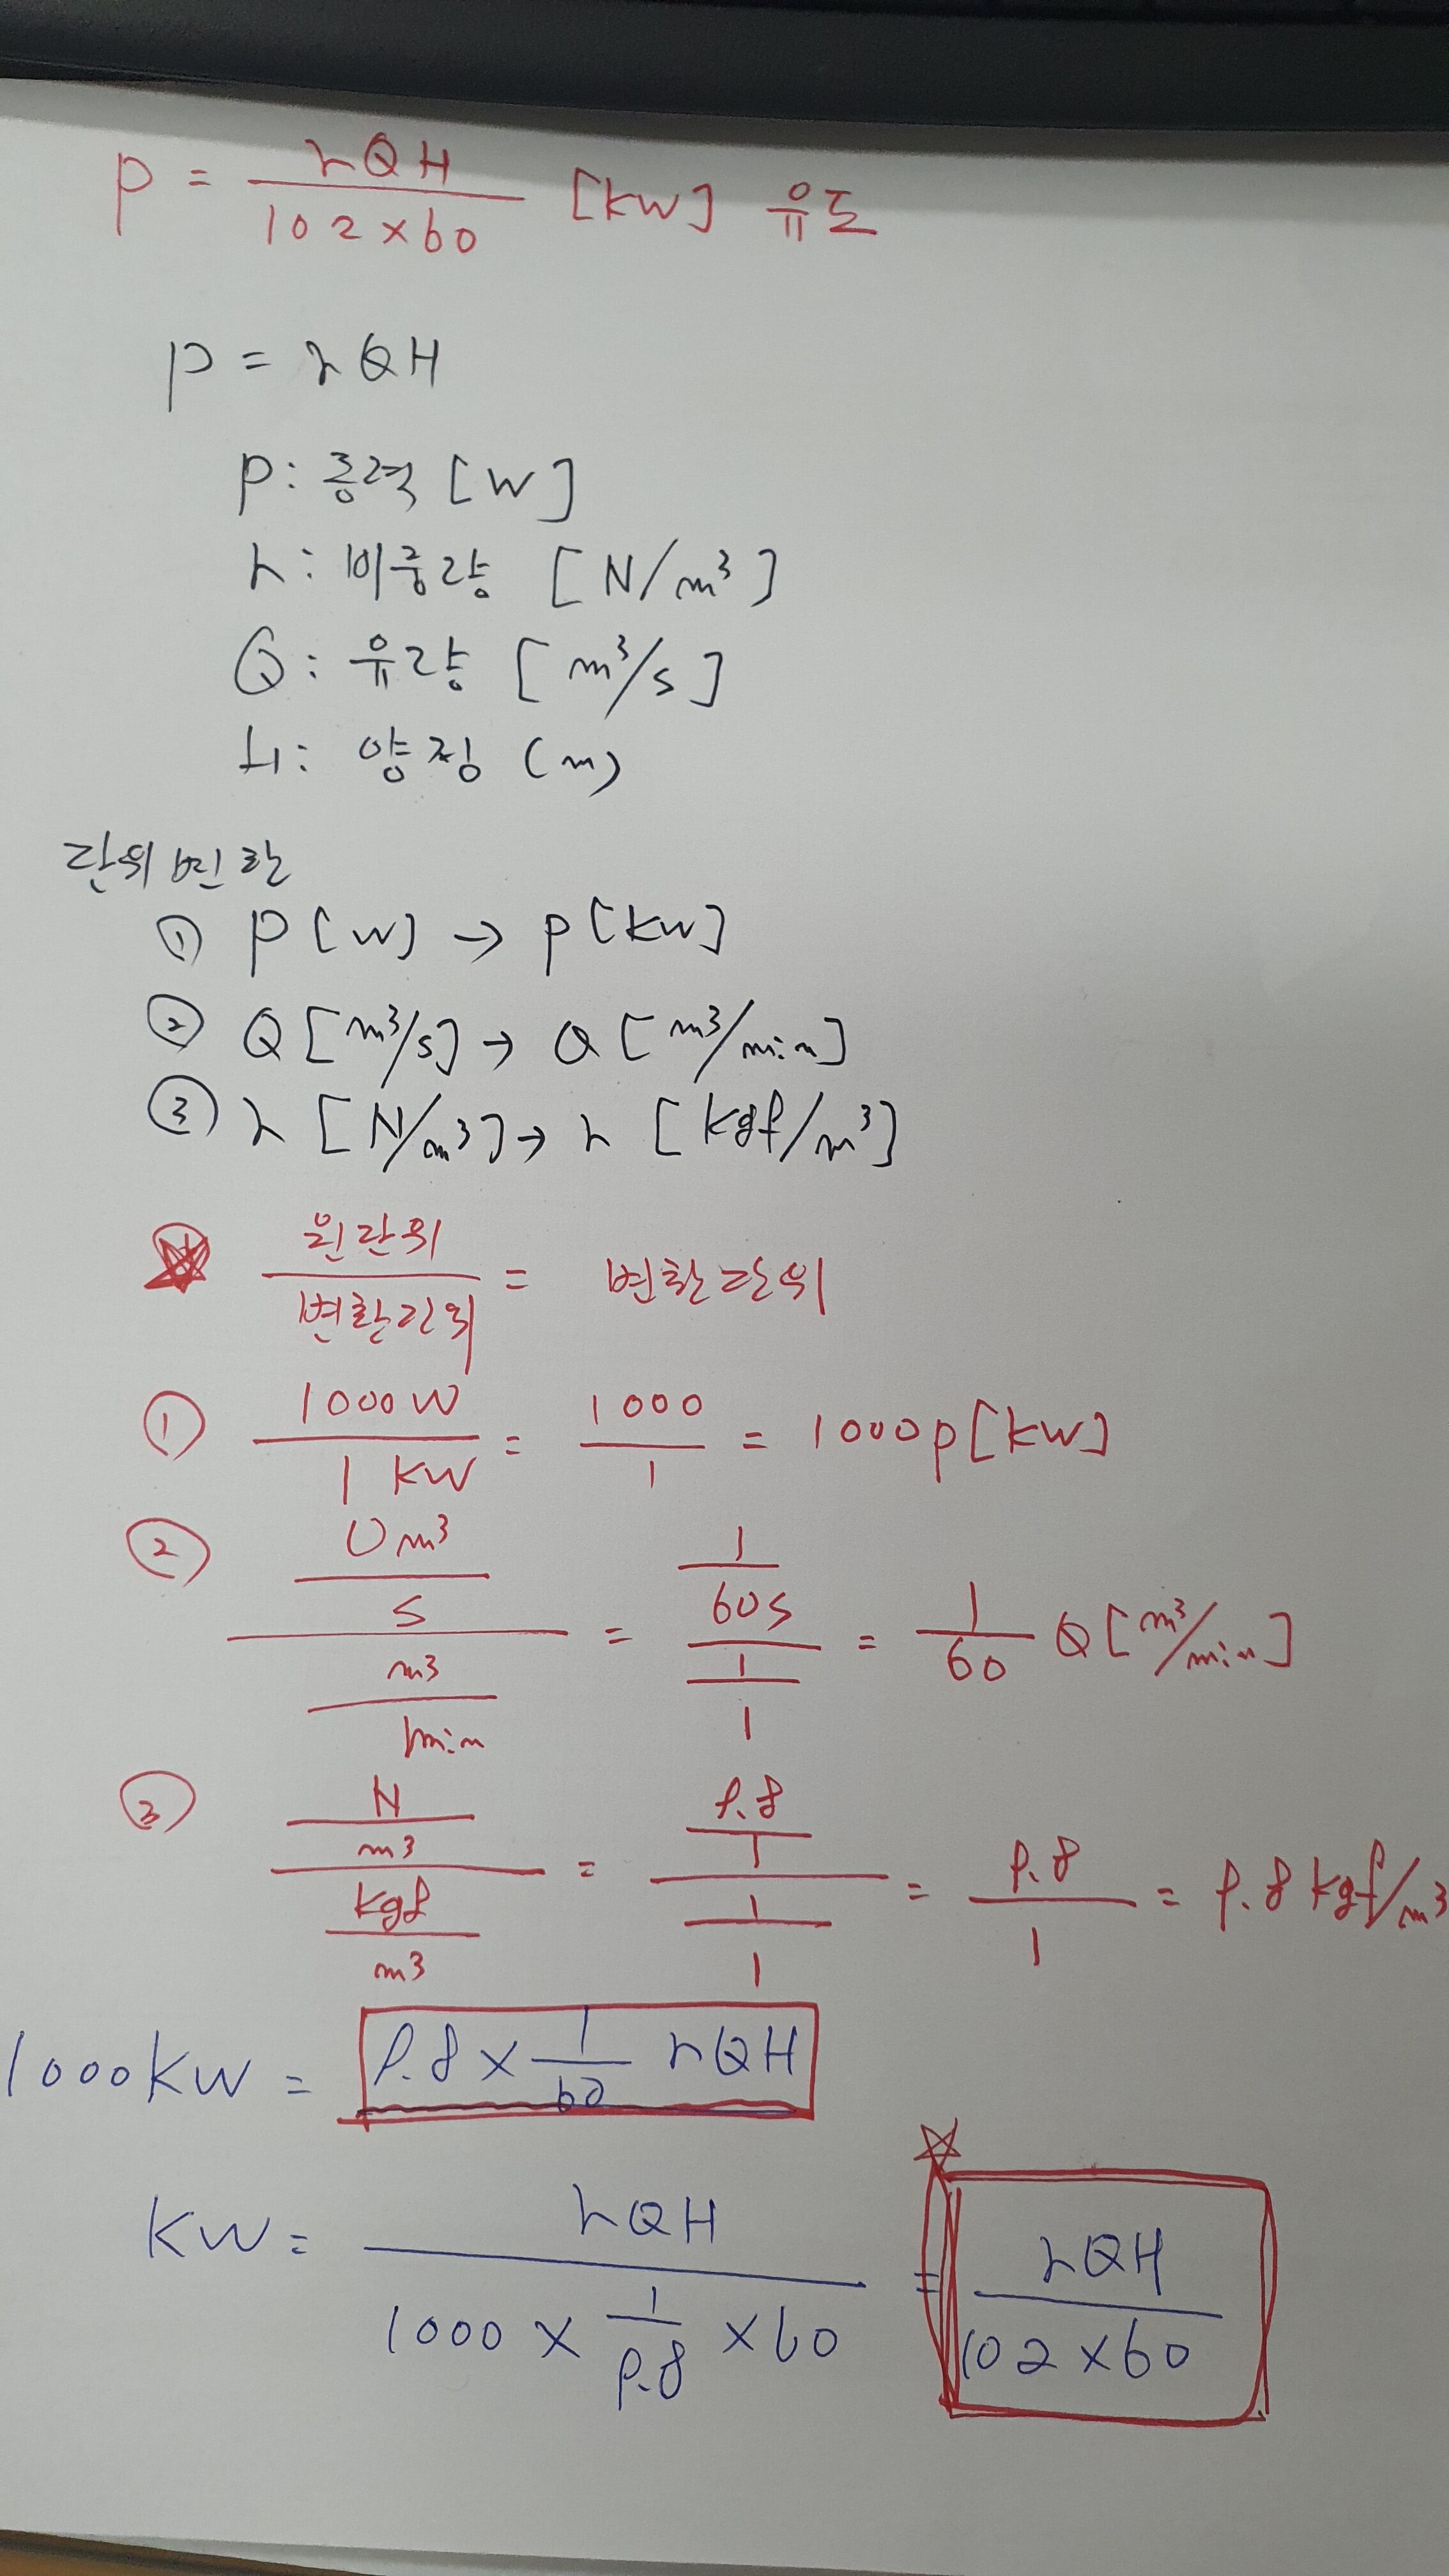 P = rQH / 102×60 [kW] 유도
P = rQH
P: 동력 [W]
r: 비중량 [N/m³]
Q: 유량 [m³/s]
H: 양정 (m)
단위변환
① P[W] → P[kW]
② Q[m³/s] → Q[m³/min]
③ r[N/m³] → r[kgf/m³]
☆ 원단위 / 변환단위 = 변환단위
① 1000W / 1kW = 1000 / 1 = 1000P[kW]
② m³/s / m³/min = 1/60s / 1/1 = 1/60 Q[m³/min]
③ N/m³ / kgf/m³ = 9.8/1 / 1/1 = 9.8/1 = 9.8kgf/m³
1000KW = 9.8 × 1/60 rQH
KW = rQH / 1000 × 1/9.8 × 60 = ☆ rQH / 102×60